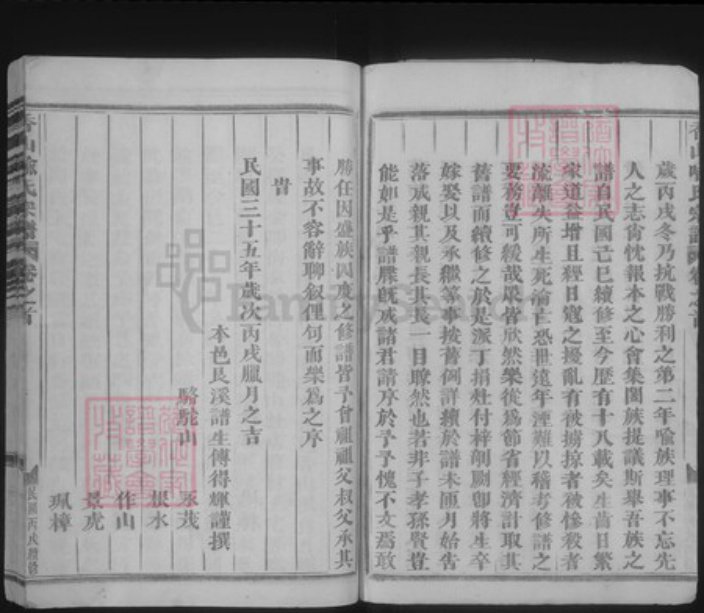 歲丙戌冬乃抗戰勝利之第二年喻族理事不忘先
人之志尙忱報本之心會集闔族提議斯舉吾族之
譜自民國己巳續修至今歷有十八載矣生齒日繁
家道益增且經日寇之擾亂有被擄掠者被慘殺者
流離失所生死淪亡恐世遠年湮難以稽考修譜之
要務豈可緩哉眾皆欣然樂從爲節省經濟計取其
舊譜而續修之於是派丁捐灶付梓剞劂卽將生卒
嫁娶以及承繼等事按舊例詳續於譜未匝月始告
落成親其親長其長一目瞭然也若非子孝孫賢豈
能如是乎譜牒旣成諸君請序於予予愧不文焉敢
勝任因盛族四度之修譜皆予曾祖祖父叔父承其
事故不容辭聊叙俚句而樂爲之序
旹
民國三十五年歲次丙戌臘月之吉
本邑艮溪譜生傅得輝謹撰
駱駝山
茂
水
作山
景虎
珮樟
香山喻氏宗譜 卷之首
民國丙戌續修
FamilySearch